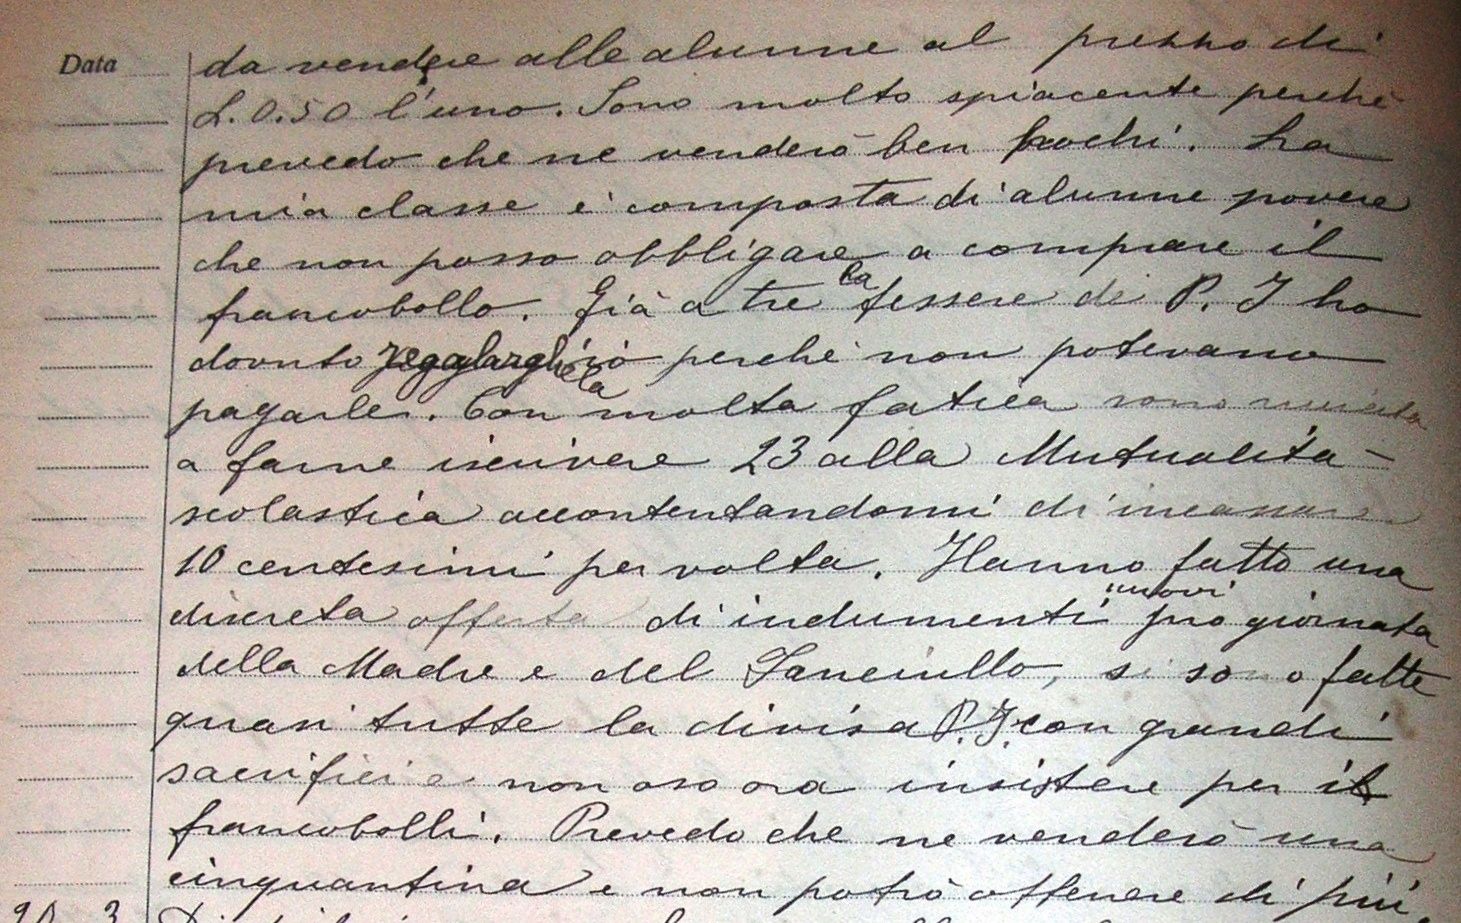 Data
da vendere alle alunne al prezzo di
L. 0.50 l'uno. Sono molto spiacente perchè
prevedo che ne venderò ben pochi. La
mia classe è composta di alunne povere
che non posso obbligare a comprare il
francobollo. Già a tre la tessere di P. I ho
dovuto regalargliela io perchè non potevano
pagarle. Con molta fatica sono riuscita
a farne iscrivere 23 alla Mutualità
scolastica accontentandomi di incassare
10 centesimi per volta. Hanno fatto una
discreta offerta di indumenti nuovi pro giornata
della Madre e del Fanciullo, si sono fatte
quasi tutte la divisa P.I. con grandi
sacrifici e non oso ora insistere per il
francobolli. Prevedo che ne venderò una
cinquantina e non potrò ottenere di più.
20 3